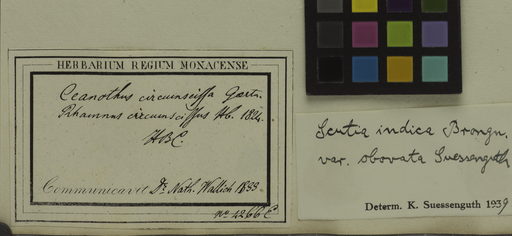 HERBARIUM REGIUM MONACENSE
Ceanothus circumscissa Gærtn.
Rhamnus circumscissus Hb. 1824.
HBC.
Communicavit Dr. Nath. Wallich 1833
no 4266 C
Scutia indica Brongn.
var. obovata Suessenguth
Determ. K. Suessenguth 1939